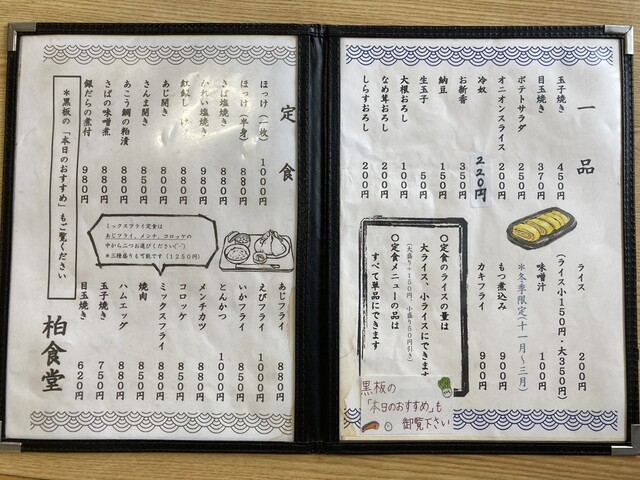 一品
玉子焼き 450円
目玉焼き 370円
ポテトサラダ 250円
オニオンスライス 200円
冷奴 220円
お新香 350円
納豆 150円
生玉子 50円
大根おろし 100円
なめ茸おろし 200円
しらすおろし 200円
ライス 200円
(ライス小150円・大350円)
味噌汁 100円
*冬季限定(十一月~三月)
もつ煮込み 900円
カキフライ 900円
〇定食のライスの量は
大ライス、小ライスにできます
(大盛り+150円、小盛り50円引き)
〇定食メニューの品は
すべて単品にできます
黒板の
「本日のおすすめ」も
御覧下さい
定食
ほっけ(一枚) 1000円
ほっけ(半身) 880円
さば塩焼き 880円
かれい塩焼き 980円
あじ開き 880円
さんま開き 850円
あこう鯛の粕漬 880円
さばの味噌煮 880円
銀だらの煮付 980円
*黒板の「本日のおすすめ」もご覧ください
ミックスフライ定食は
あじフライ、メンチ、コロッケの
中から二つお選びください(^-^)
*三種盛りも可能です(1250円)
あじフライ 880円
えびフライ 1000円
いかフライ 850円
とんかつ 1000円
メンチカツ 880円
コロッケ 850円
ミックスフライ 880円
焼肉 850円
ハムエッグ 880円
玉子焼き 750円
目玉焼き 620円
柏食堂